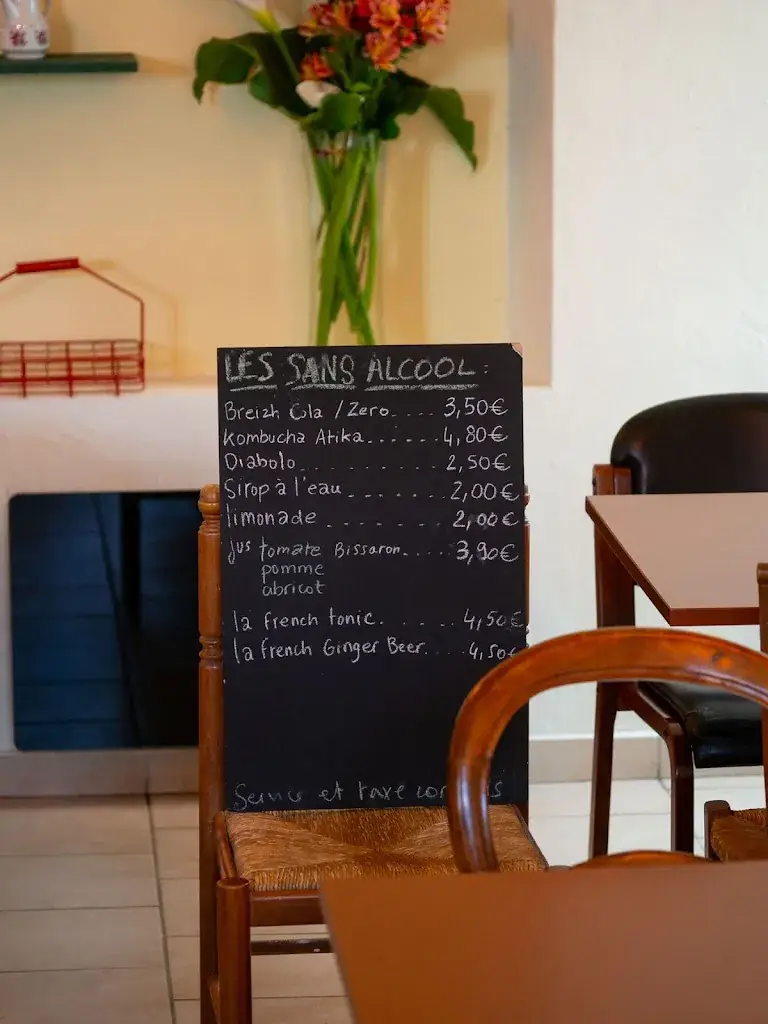 LES SANS ALCOOL :
Breizh Cola / Zero.... 3,50€
Kombucha Atika...... 4,80€
Diabolo.......... 2,50€
Sirop à l'eau....... 2,00€
limonade........ 2,00€
jus tomate Bissaron..... 3,90€
pomme
abricot
la french tonic...... 4,50€
la french Ginger Beer.... 4,50€
Service et taxe